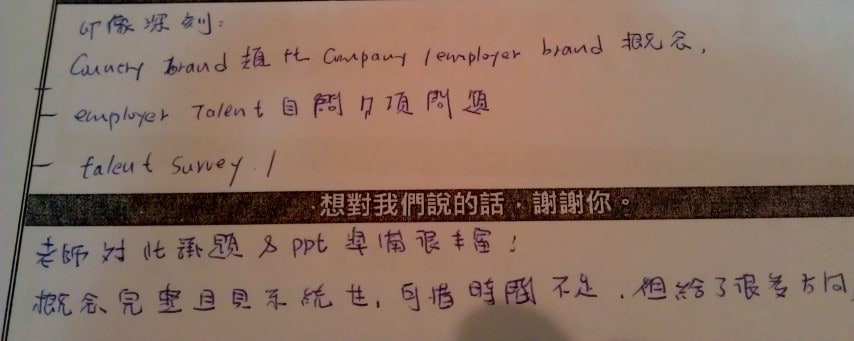 印像深刻:
Country brand 類比 Company / employer brand 概念,
- employer Talent 自問 7 項問題
- talent survey. /
想對我們說的話，謝謝你。
老師對此課題 & ppt 準備很丰富!
概念完整且具系統性, 可惜時間不足, 但給了很多方向